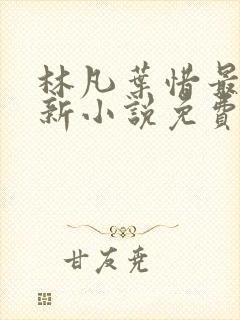 林凡葉惜最
新小說免費
甘友堯